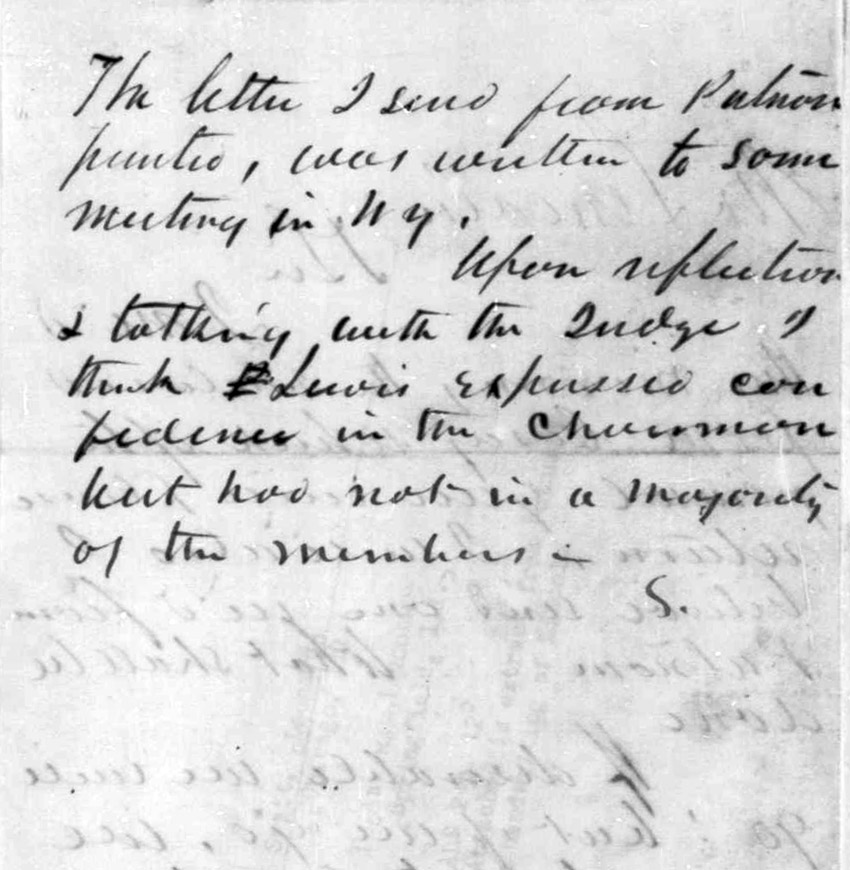 The letter I send from Putnam
printed, was written to some
meeting in N Y.
Upon reflection
& talking with the Judge I
think Lewis expressed con
fidence in the Chairman
but had not in a majority
of the members –
S.